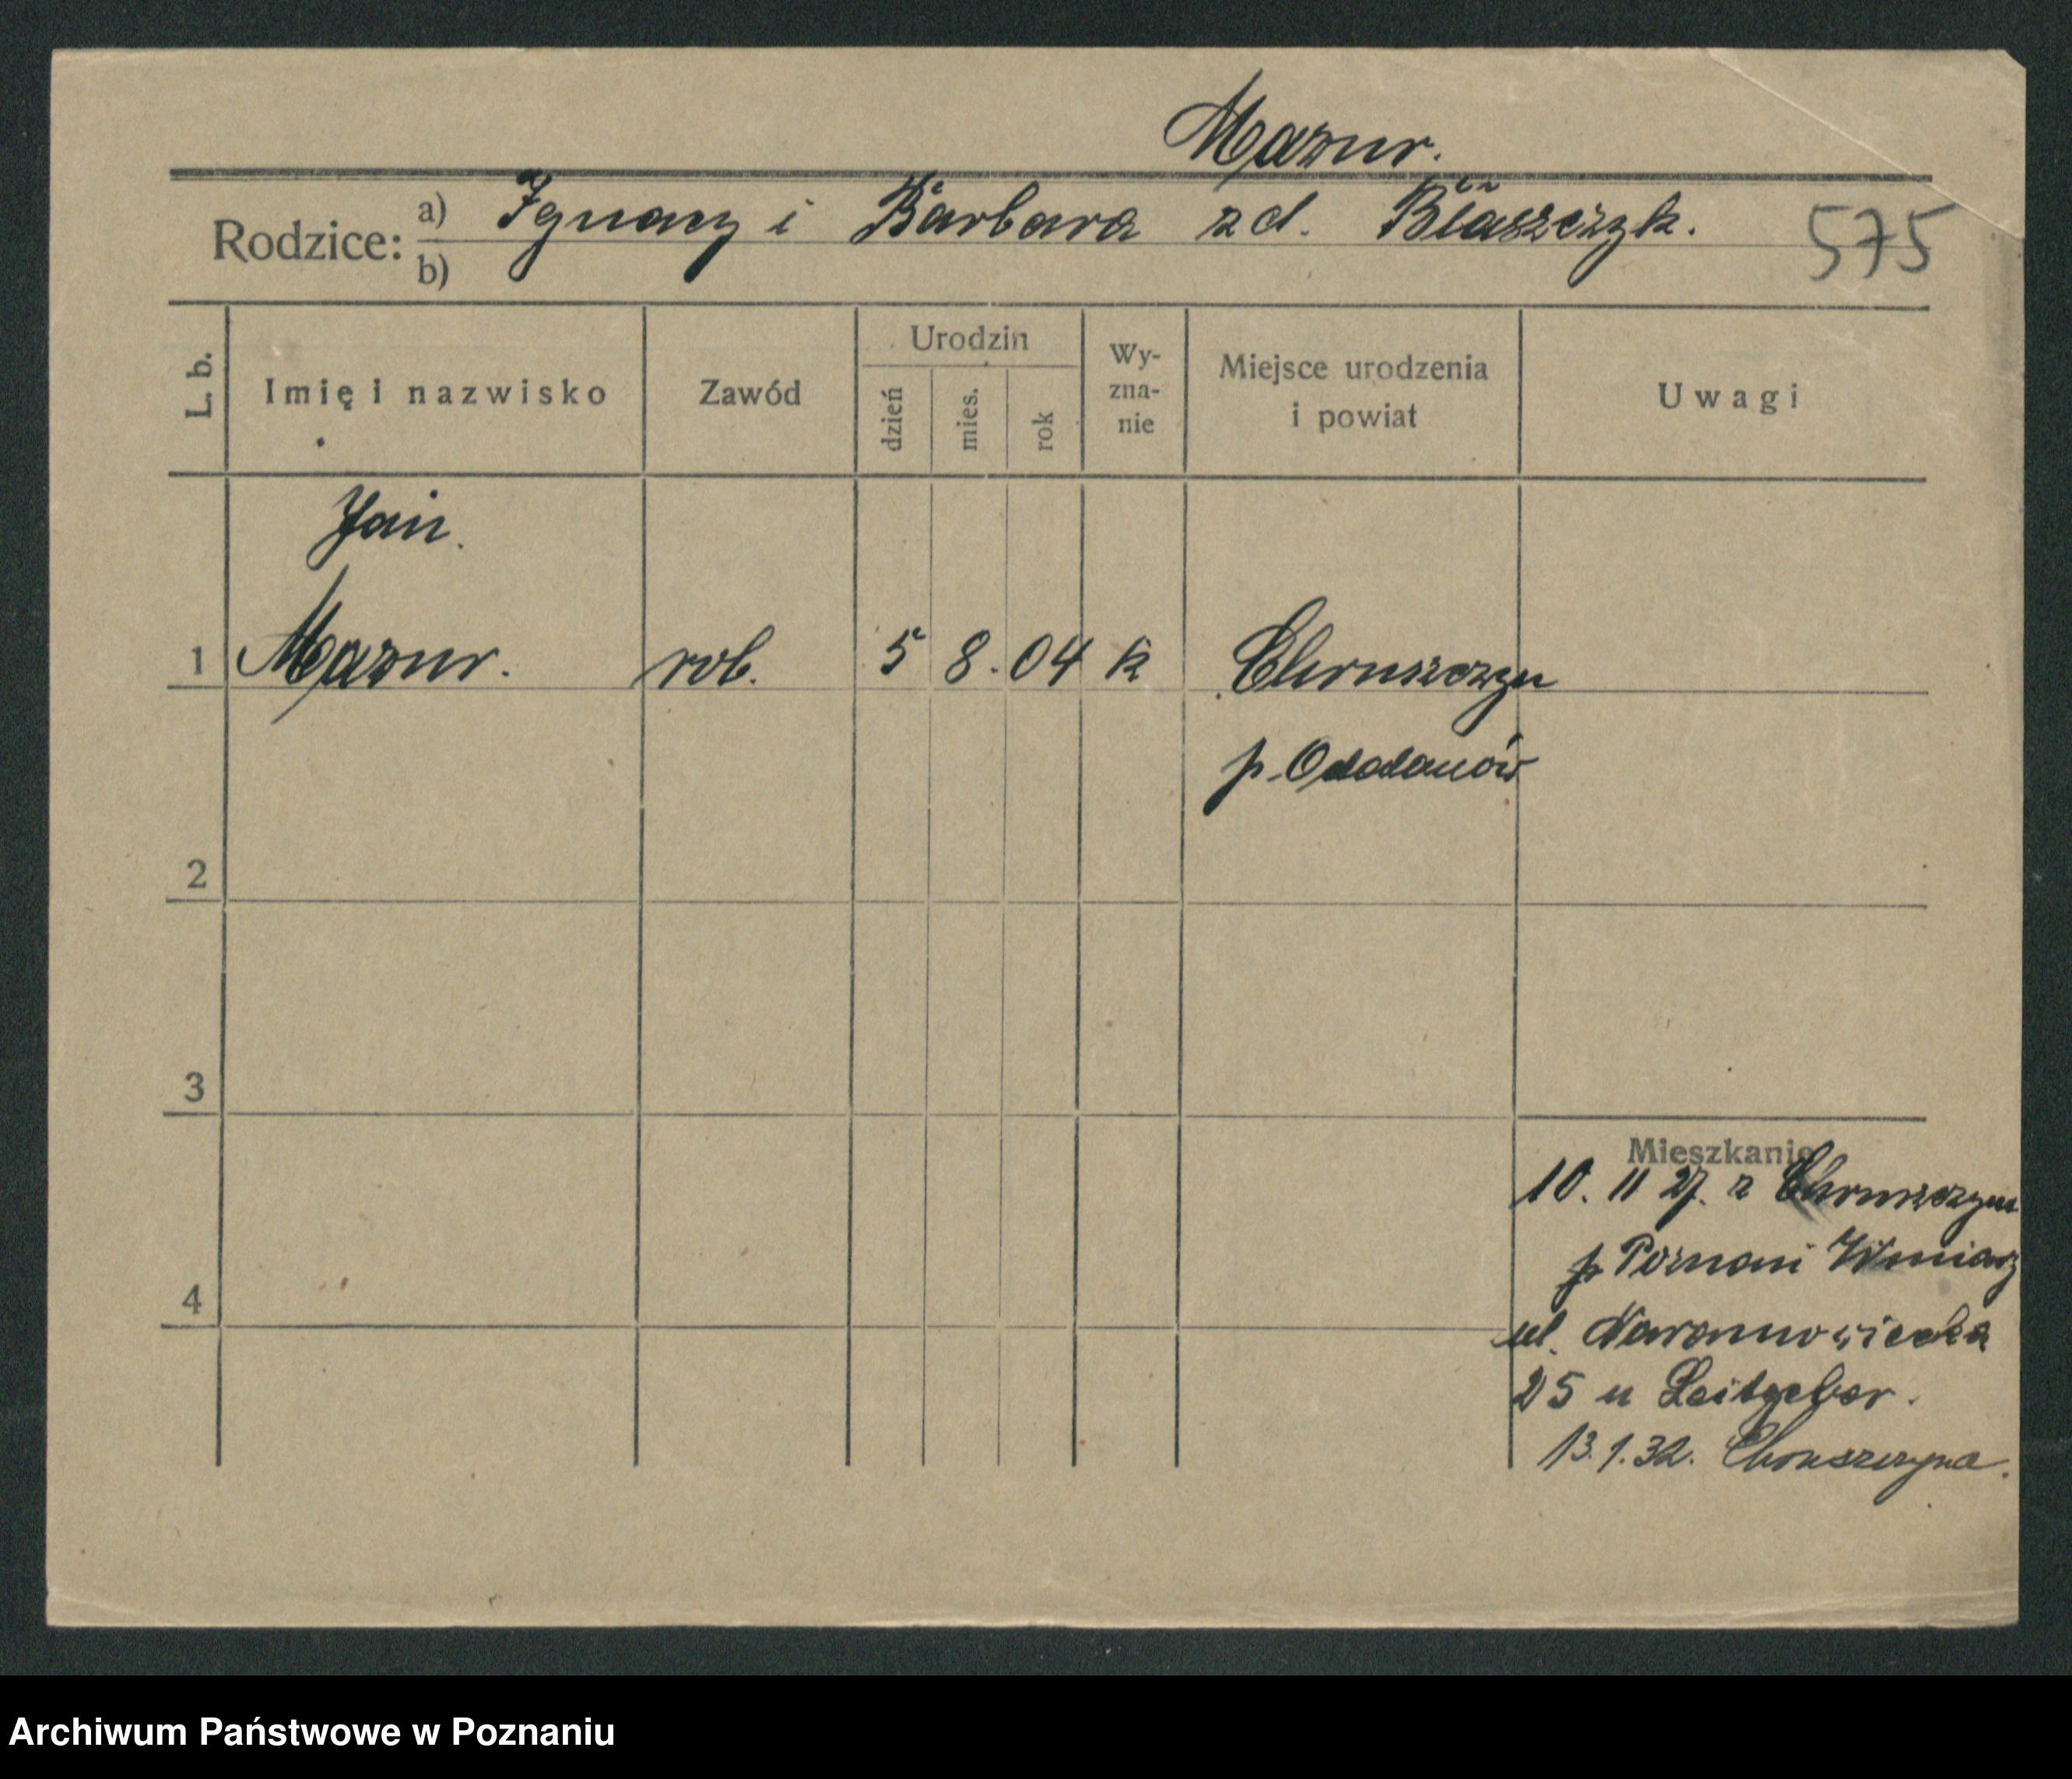 Mazur.
Rodzice: a) Ignacy i Barbara z d. Błaszczyk.
b)
575
L. b. Imię i nazwisko Zawód Urodzin dzień mies. rok Wy-zna-nie Miejsce urodzenia i powiat Uwagi
Jan.
1 Mazur. rob. 5 8. 04 k Chruszczyn
p. Odolanów
2
3
Mieszkanie
10. 11 27. z Chruszczyn
p Poznań Winiary
4
ul. Naramowicka
25 u Leitgeber.
13.1.32. Chruszczyna.
Archiwum Państwowe w Poznaniu